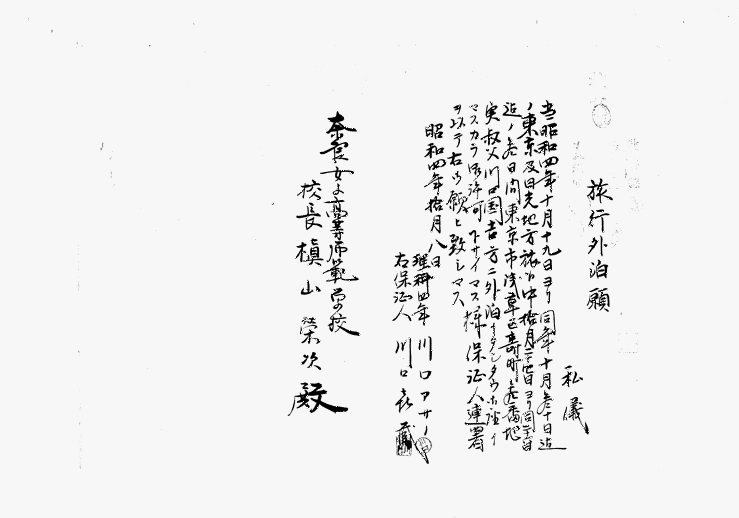 旅行外泊願
私儀
当昭和四年十月十九日ヨリ同年十月参十日迄
ノ東京及日光地方旅行中拾月二十四日ヨリ同二十六日
迄ノ参日間東京市浅草区寿町参番地
実叔父川口国吉方ニ外泊
マスカラ御許可下サイマス様保証人連署
ヲ以テ右御願ヒ致シマス
昭和四年拾月八日
理科四年 川口アサノ
右保証人 川口喜蔵
奈良女子高等師範学校
校長 槇山栄次殿